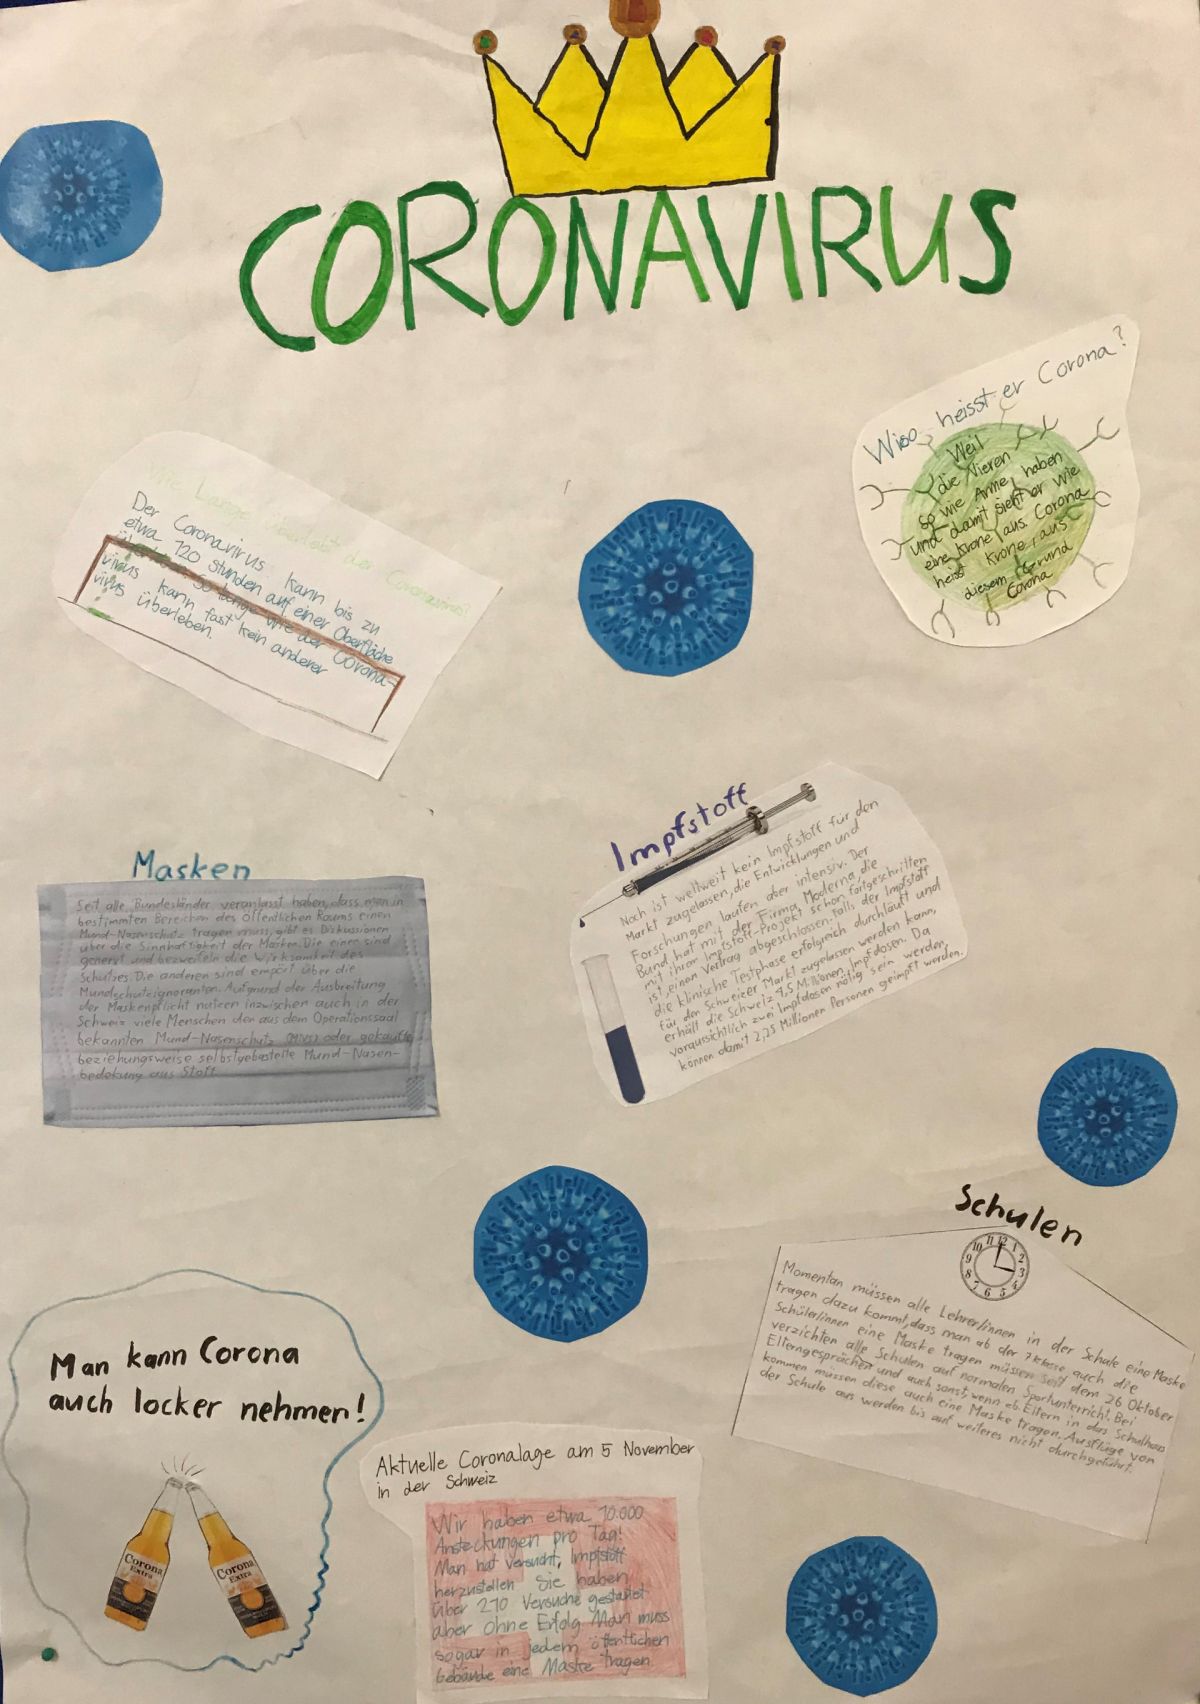 CORONAVIRUS
Wiso heisst er Corona?
Weil
die Vieren
so wie Arme haben
und damit sieht er wie
eine Krone aus. Corona
heisst Krone, aus
diesem Grund
Corona
Wie Lange überlebt der Coronavirus?
Der Coronavirus kann bis zu
etwa 120 stunden auf einer Oberfläche
überleben. So lange wie der Corona-
virus kann fast kein anderer
virus überleben.
Impfstoff
Noch ist weltweit kein Impfstoff für den
Markt zugelassen, die Entwicklungen und
Forschungen laufen aber intensiv. Der
Bund hat mit der Firma Moderna, die
mit ihrer Impfstoff-Projekt schon fortgeschritten
ist, einen Vertrag abgeschlossen. Falls der Impfstoff
die klinische Testphase erfolgreich durchläuft und
für den Schweizer Markt zugelassen werden kann,
erhält die Schweiz 4,5 Millionen Impfdosen. Da
voraussichtlich zwei Impfdosen nötig sein werden,
können damit 2,25 Millionen Personen geimpft werden.
Masken
Seit alle Bundesländer veranlasst haben, dass man in
bestimmten Bereichen des Öffentlichen Raums einen
Mund-Nasenschutz tragen muss, gibt es Diskussionen
über die Sinnhaftigkeit der Masken. Die einen sind
generyt und bezweifeln die Wirksamkeit des
Schutzes. Die anderen sind empört über die
Mundschutzignoranten. Aufgrund der Ausbreitung
der Maskenpflicht nutzen inzwischen auch in der
Schweiz viele Menschen der aus dem Operationssaal
bekannten Mund-Nasenschutz (MNS) oder gekaufte
beziehungsweise selbstgebastelte Mund-Nasen-
bedekung aus Stoff.
Schulen
11 12 1
10 2
9 3
8 4
7 6 5
Momentan müssen alle Lehrer/innen in der Schule eine Maske
tragen dazu kommt, dass man ab der 7 Klasse auch die
Schüler/innen eine Maske tragen müssen. Seit dem 26 Oktober
verzichten alle Schulen auf normalen Sportunterricht. Bei
Elterngesprächen und auch sonst, wenn eb. Eltern in das Schulhaus
kommen müssen diese auch eine Maske tragen. Ausflüge von
der Schule aus werden bis auf weiteres nicht durchgeführt.
Man kann Corona
auch locker nehmen!
Corona
Extra
Corona
Extra
Aktuelle Coronalage am 5 November
in der Schweiz
Wir haben etwa 10.000
Ansteckungen pro Tag!
Man hat versucht, Impfstoff
herzustellen Sie haben
über 210 Versuche gestartet
aber ohne Erfolg Man muss
sogar in jedem öffentlichen
Gebäude eine Maske tragen.